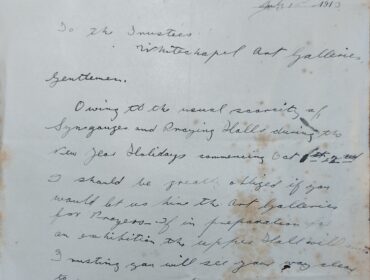 1913
To the Trustees
Whitechapel Art Galleries
Gentlemen.
Owing to the usual scarcity of
Synagouges and Praying Halls during the
New Year Holidays commencing Oct 1st, 2nd
I should be greatly obliged if you
would let us hire the Art Galleries
for Prayers. If in preparation for
an exhibition the upper Hall will
Trusting you will see your way clear
to